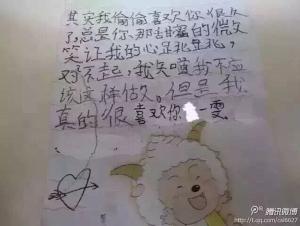 其实我偷偷喜欢你很久
了,总是你那甜蜜的微
笑让我的心
对不起,我知道我不应
该这样做。但是我
真的很喜欢你 一雯
腾讯微博
http://t.qq.com/